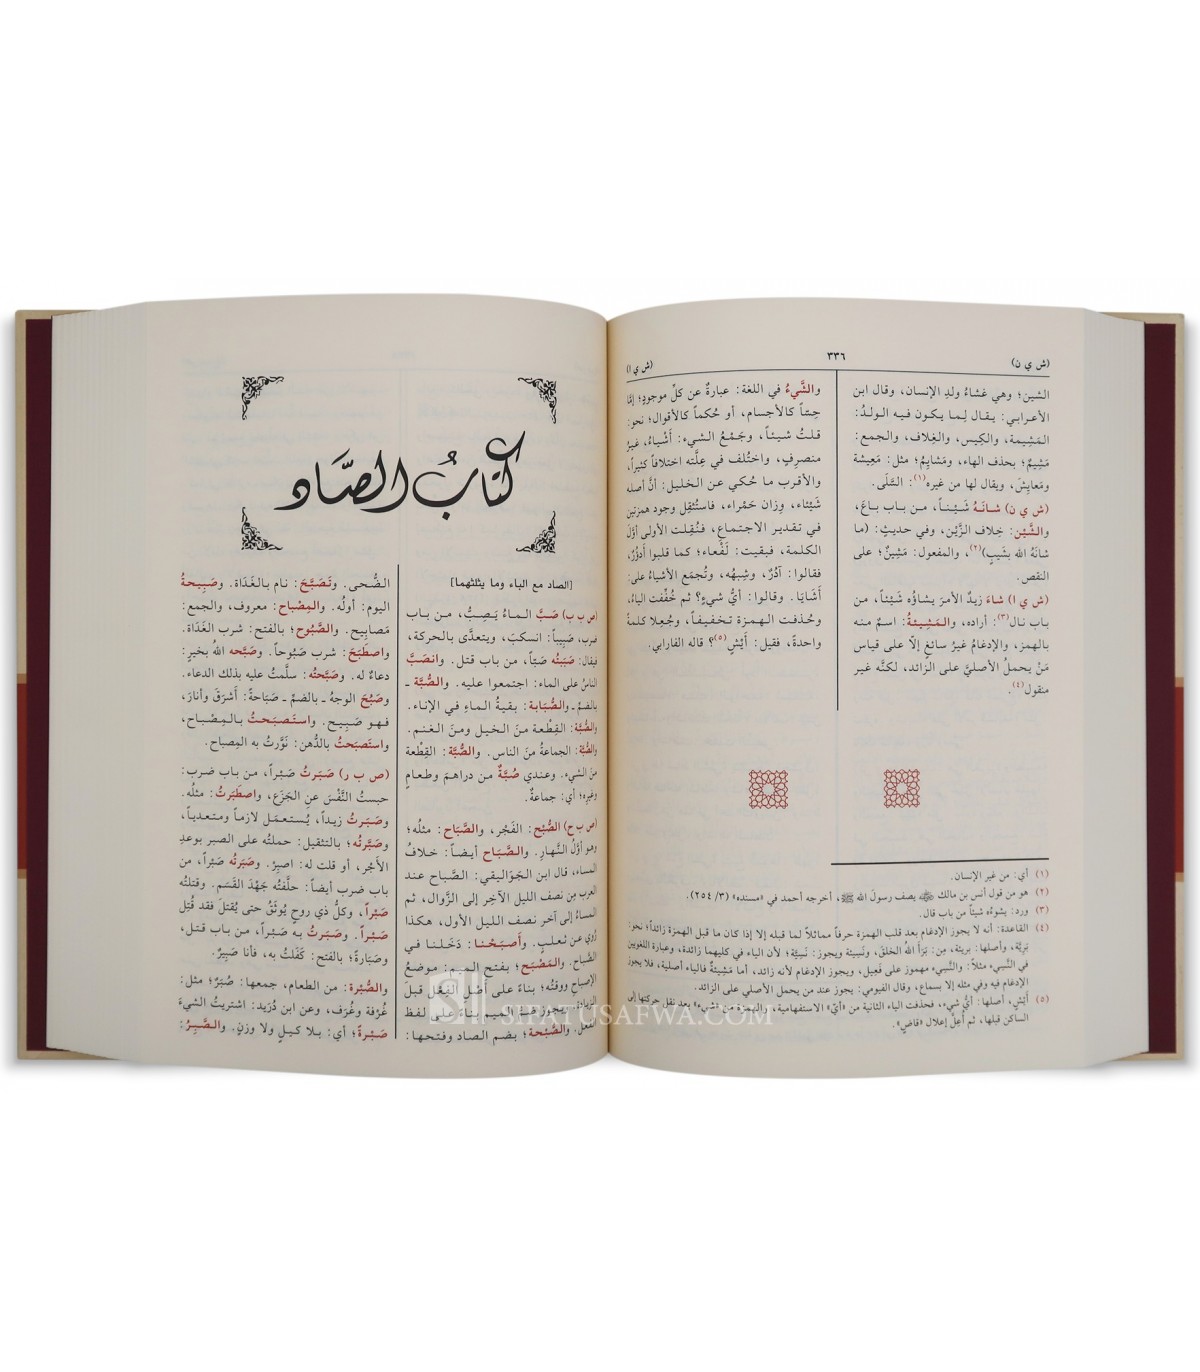 (ش ي ن)
٣٣٦
(ش ي ا)
الشين؛ وهي غشاءُ ولدِ الإنسان، وقال ابن
الأعرابي: يقال لِما يكون فيه الولدُ:
المَشِيمة، والكِيس، والغِلاف، والجمع:
مَشِيمٌ؛ بحذف الهاء، ومَشايِمُ؛ مثل: مَعِيشة
ومَعايِشَ، ويقال لها من غيره(١): السَّلَى.
(ش ي ن) شانَهُ شَيْناً، من باب باعَ،
والشَّيْن: خِلاف الزَّيْن، وفي حديثٍ: (ما
شانَهُ الله بشَيبٍ)(٢)، والمفعول: مَشِينٌ؛ على
النقص.
(ش ي ا) شاءَ زيدٌ الأمرَ يشاؤه شَيْئاً، من
باب نال(٣): أراده، والمَشِيئةُ: اسمٌ منه
بالهمز، والإدغامُ غيرُ سائغٍ إلّا على قياس
مَنْ يحملُ الأصليَّ على الزائد، لكنَّه غير
منقول(٤).
والشَّيءُ في اللغة: عبارةٌ عن كلِّ موجودٍ؛ إمّا
حِسّاً كالأجسام، أو حُكماً كالأقوال؛ نحو:
قلتُ شيئاً، وجَمْعُ الشيء: أَشْياءُ، غيرُ
منصرِفٍ، واختُلف في عِلَّته اختلافاً كثيراً،
والأقرب ما حُكي عن الخليل: أنَّ أصله
شَيْئاء، وِزان حَمْراء، فاستُثقِل وجود همزتين
في تقدير الاجتماع، فنُقِلت الأولى أوّلَ
الكلمة، فبقيت: لَفْعاء؛ كما قلبوا أَدْؤُرٌ،
فقالوا: آدُرٌ، وشِبهُه، وتُجمَع الأشياءُ على:
أَشايَا. وقالوا: أيُّ شيءٍ؟ ثم خُفِّفت الياءُ،
وحُذفت الهمزة تخفيفاً، وجُعِلا كلمةً
واحدةً، فقيل: أَيْشٍ(٥)؟ قاله الفارابي.
(١) أي: من غير الإنسان.
(٢) هو من قول أنس بن مالك ﷺ يصف رسولَ الله ﷺ، أخرجه أحمد في «مسنده» (٣/ ٢٥٤).
(٣) ورد: يشوءُه شيئاً من باب قال.
(٤) القاعدة: أنه لا يجوز الإدغام بعد قلب الهمزة حرفاً مماثلاً لما قبله إلا إذا كان ما قبل الهمزة زائداً؛ نحو:
بَرِيَّة، وأصلها: بريئة، مِن: بَرَأَ اللهُ الخلقَ، ونَسِيئة ويجوز: نَسِيَّة؛ لأن الياء في كليهما زائدة، وعبارة اللغويين
في النَّسِيء مثلاً: والنَّسِيء مهموز على فَعِيل، ويجوز الإدغام لأنه زائد، أما مَشِيئةٌ فالياء أصلية، فلا يجوز
الإدغام فيه وفي مثله إلا بسماع، وقال الفيومي: يجوز عند من يحمل الأصلي على الزائد.
(٥) أَيْشٍ، أصلها: أيُّ شيء، فحذفت الياء الثانية من «أيّ» الاستفهامية، والهمزة من «شيء» بعد نقل حركتها إلى
الساكن قبلها، ثم أُعِلَّ إعلال «قاضٍ».
كتابُ الصَّاد
[الصاد مع الباء وما يثلثهما]
(ص ب ب) صَبَّ الماءُ يَصِبُّ، من باب
ضرب، صَبِيباً: انسكبَ، ويتعدَّى بالحركة،
فيقال: صَبَبْتُه صَبّاً، من باب قتل. وانصَبَّ
الناسُ على الماء: اجتمعوا عليه. والصُّبَّة ـ
بالضمِّ ـ والصُّبَابة: بقيةُ الماءِ في الإناء.
والصُّبَّة: القِطعة منَ الخيل ومنَ الغنم.
والصُّبَّة: الجماعةُ منَ الناس. والصُّبَّة: القِطعة
منَ الشيء. وعندي صُبَّةٌ من دراهمَ وطعامٍ
وغيرِه؛ أي: جماعةٌ.
(ص ب ح) الصُّبْح: الفَجْر، والصَّبَاح: مثلُه؛
وهو أوَّلُ النَّهارِ. والصَّبَاح أيضاً: خلافُ
المساء، قال ابن الجَوَاليقي: الصَّباح عند
العرب مِن نصف الليل الآخِر إلى الزَّوال، ثم
المساءُ إلى آخر نصف الليل الأول، هكذا
رُوِيَ عن ثعلبٍ. وأَصبَحْنا: دَخَلنا في
الصَّباح. والمَصْبَح؛ بفتح الميم: موضعُ
الإصباحِ ووقتُه؛ بناءً على أَصْل الفعْل قبلَ
الزيادة، ويجوز ضمُّ الميم؛ بناءً على لفظ
الفعل. والصُّبْحة؛ بضم الصاد وفتحها:
الضُّحى. وتَصَبَّحَ: نام بالغَدَاة. وصَبِيحةُ
اليوم: أولُه. والمِصْباح: معروف، والجمع:
مَصابِيح. والصَّبُوح؛ بالفتح: شرب الغَدَاة.
واصطَبَحَ: شرب صَبُوحاً. وصَبَّحه اللهُ بخيرٍ:
دعاءٌ له. وصَبَّحتُه: سلَّمتُ عليه بذلك الدعاء.
وصَبُحَ الوجهُ ـ بالضمِّ ـ صَبَاحةً: أشرَقَ وأنارَ،
فهو صَبِيح. واستَصبَحتُ بالمِصْباح،
واستَصبَحتُ بالدُّهن: نَوَّرتُ به المِصباح.
(ص ب ر) صَبَرتُ صَبْراً، من باب ضرب:
حبستُ النَّفْسَ عنِ الجَزَع، واصطَبَرتُ: مثلُه.
وصَبَرتُ زيداً، يُستعمَل لازماً ومتعدياً،
وصَبَّرتُه؛ بالتثقيل: حملتُه على الصبر بوعدِ
الأَجْر، أو قلت له: اصبِرْ. وصَبَرتُه صَبْراً، من
باب ضرب أيضاً: حلَّفتُه جَهْدَ القَسَم. وقتلتُه
صَبْراً، وكلُّ ذي روحٍ يُوثَقُ حتى يُقتلَ فقد قُتِل
صَبْراً. وصَبَرتُ به صَبْراً، من باب قتل،
وصَبَارةً؛ بالفتح: كَفَلتُ به، فأنا صَبِيرٌ.
والصُّبْرة: من الطعام، جمعها: صُبَرٌ؛ مثل:
غُرْفة وغُرَف، وعن ابن دُرَيد: اشتريتُ الشيءَ
صُبْرةً؛ أي: بلا كيلٍ ولا وزنٍ. والصَّبِرُ:
SIFATUSAFWA.COM